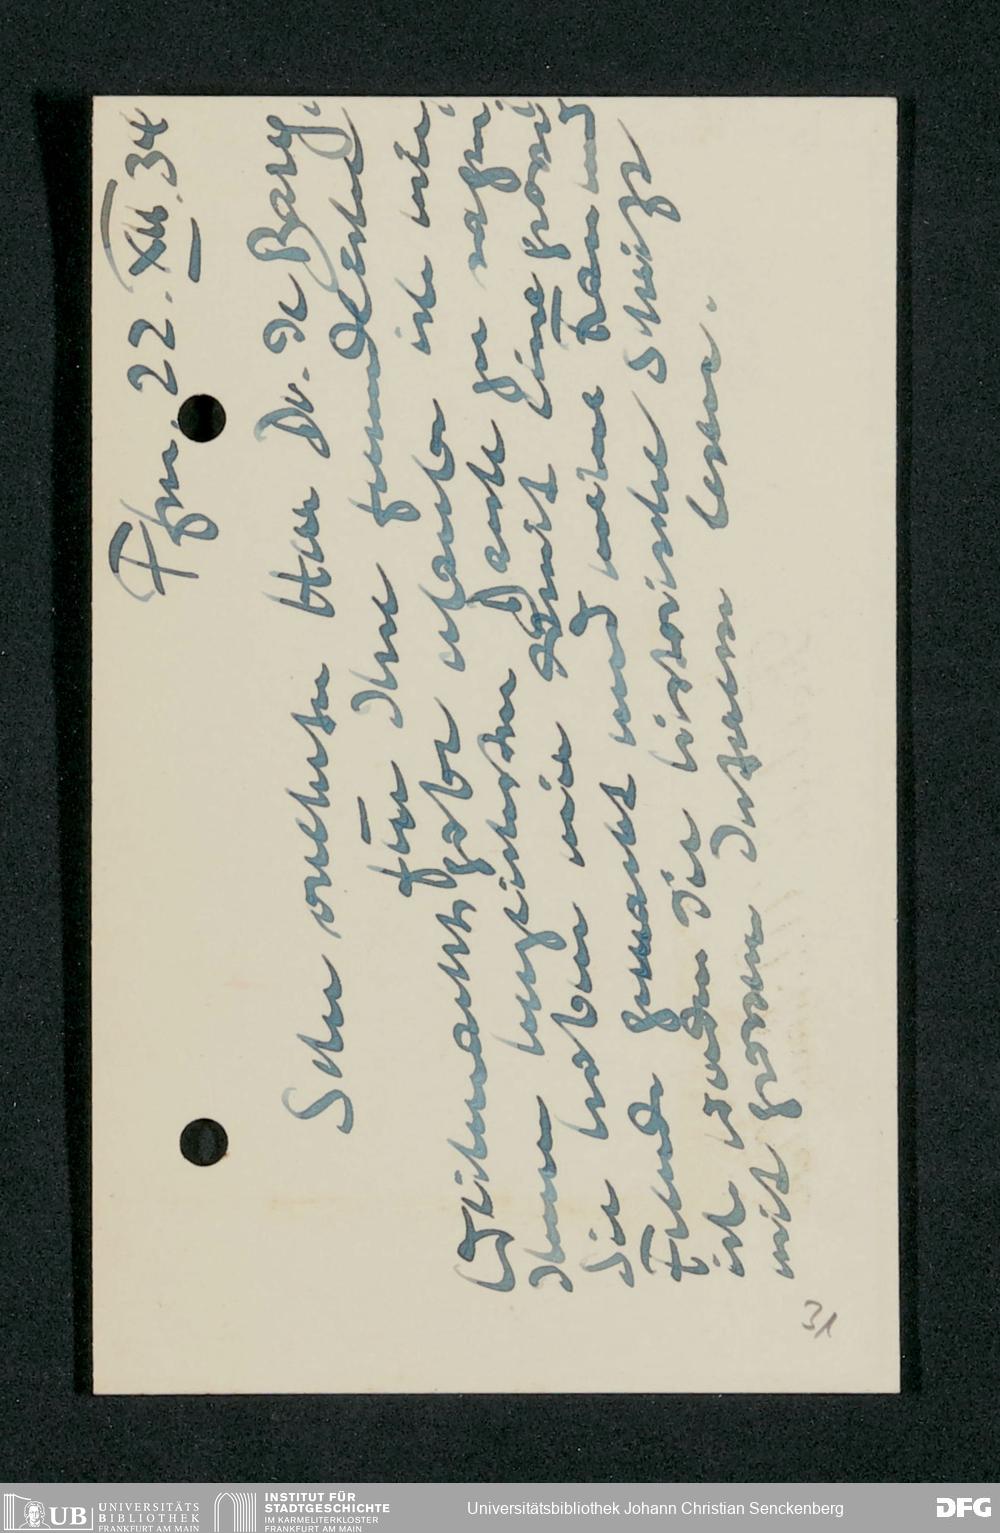 Ffm, 22. XII. 34
Sehr verehrter Herr Dr. de Bary.
für Ihre freundliche
Weihnachtsgabe erlaube ich mir
Ihnen herzlichsten Dank zu sagen.
Sie haben mir damit eine grosse
Freude gemacht und meine Frau und
ich werden die historische Skizze
mit grossem Interesse lesen.
31
UB UNIVERSITÄTS
BIBLIOTHEK
FRANKFURT AM MAIN
INSTITUT FÜR
STADTGESCHICHTE
IM KARMELITERKLOSTER
FRANKFURT AM MAIN
Universitätsbibliothek Johann Christian Senckenberg
DFG